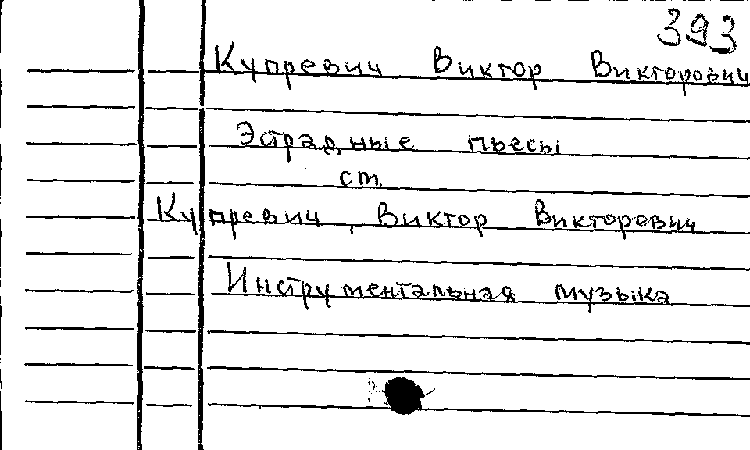 393
Купревич Виктор Викторович
Эстрадные пьесы
ст.
Купревич, Виктор Викторович
Инструментальная музыка